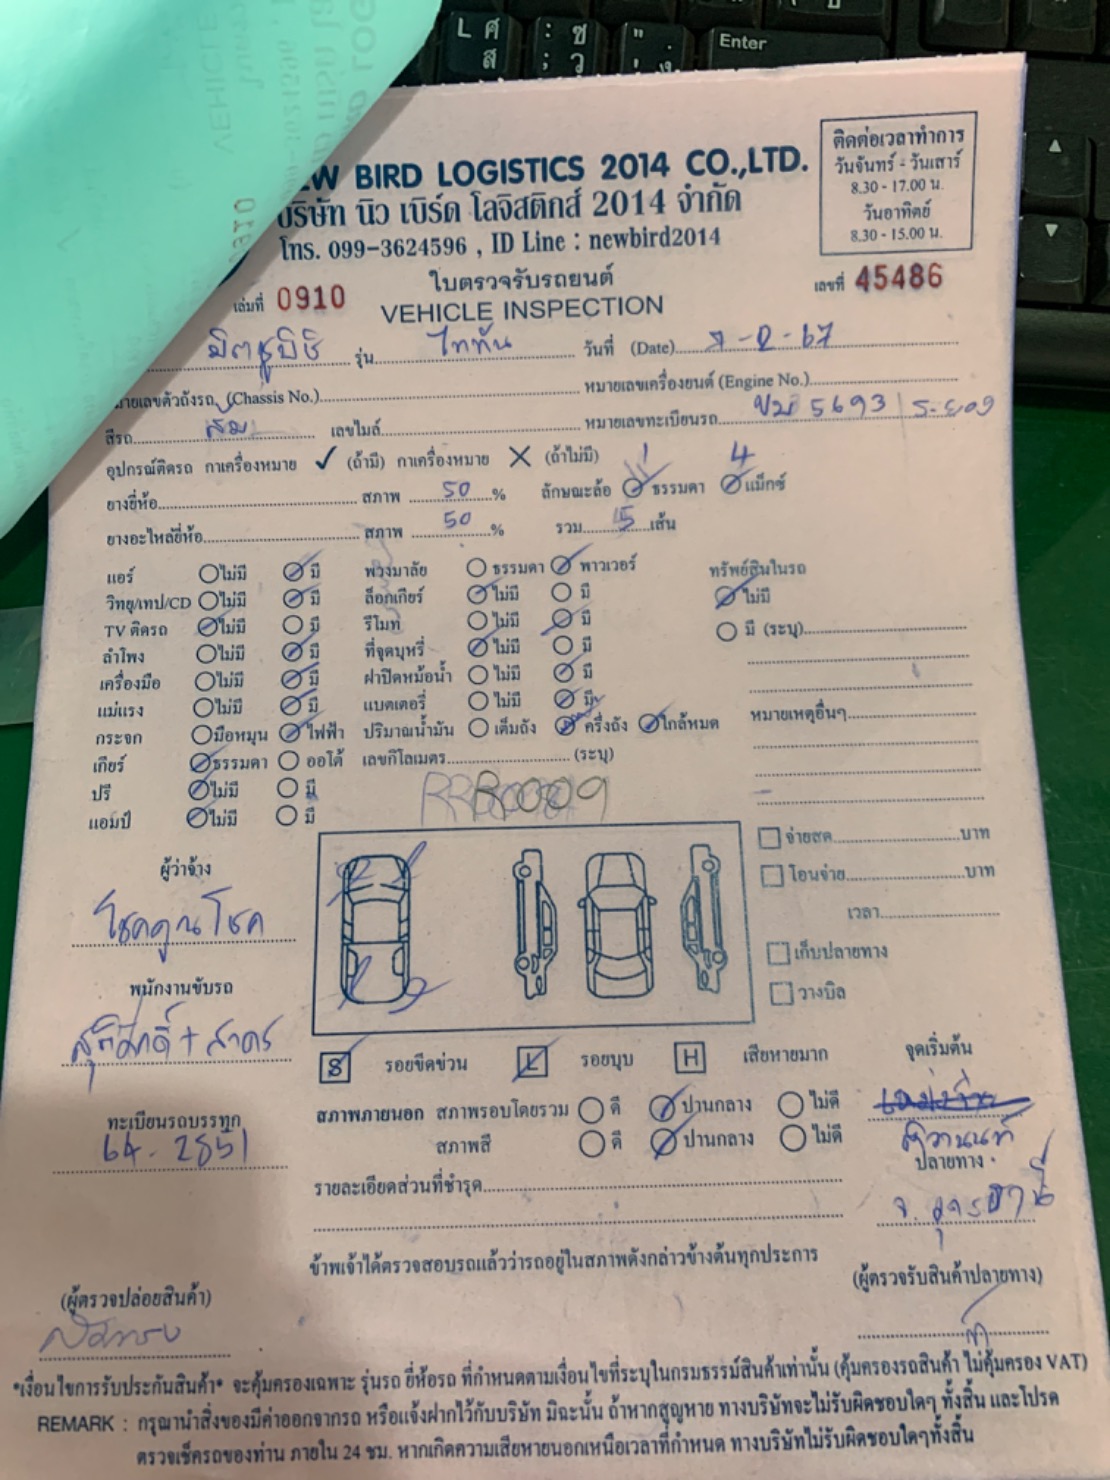 BIRD LOGISTICS 2014 CO.,LTD.
บริษัท นิว เบิร์ด โลจิสติกส์ 2014 จำกัด
โทร. 099-3624596 , ID Line : newbird2014
ติดต่อเวลาทำการ
วันจันทร์ - วันเสาร์
8.30 - 17.00 น.
วันอาทิตย์
8.30 - 15.00 น.
ใบตรวจรับรถยนต์
เล่มที่ 0910 VEHICLE INSPECTION เลขที่ 45486
มิตซูบิชิ รุ่น ไททัน วันที่ (Date) -2-67
หมายเลขตัวถังรถ (Chassis No.) หมายเลขเครื่องยนต์ (Engine No.)
สีรถ ส้ม เลขไมล์ หมายเลขทะเบียนรถ 5693 ระยอง
อุปกรณ์ติดรถ กาเครื่องหมาย ✓ (ถ้ามี) กาเครื่องหมาย ✕ (ถ้าไม่มี)
1 4
ยางยี่ห้อ สภาพ 50 % ลักษณะล้อ ธรรมดา แม็กซ์
ยางอะไหล่ยี่ห้อ สภาพ 50 % รวม 5 เส้น
แอร์ ไม่มี มี พวงมาลัย ธรรมดา พาวเวอร์ ทรัพย์สินในรถ
วิทยุ/เทป/CD ไม่มี มี ล็อกเกียร์ ไม่มี มี ไม่มี
TV ติดรถ ไม่มี มี รีโมท ไม่มี มี มี (ระบุ)
ลำโพง ไม่มี มี ที่จุดบุหรี่ ไม่มี มี
เครื่องมือ ไม่มี มี ฝาปิดหม้อน้ำ ไม่มี มี
แม่แรง ไม่มี มี แบตเตอรี่ ไม่มี มี หมายเหตุอื่นๆ
กระจก มือหมุน ไฟฟ้า ปริมาณน้ำมัน เต็มถัง ครึ่งถัง ใกล้หมด
เกียร์ ธรรมดา ออโต้ เลขกิโลเมตร (ระบุ)
ปรี ไม่มี มี
แอมป์ ไม่มี มี
จ่ายสด บาท
โอนจ่าย บาท
เวลา
เก็บปลายทาง
วางบิล
ผู้ว่าจ้าง
โชคคูณโชค
พนักงานขับรถ
สุทธิศักดิ์ + สาคร
ทะเบียนรถบรรทุก
64-2851
S รอยขีดข่วน L รอยบุบ H เสียหายมาก
จุดเริ่มต้น
สภาพภายนอก สภาพรอบโดยรวม ดี ปานกลาง ไม่ดี
สภาพสี ดี ปานกลาง ไม่ดี
ติวานนท์
ปลายทาง
จ. อุดรธานี
รายละเอียดส่วนที่ชำรุด
ข้าพเจ้าได้ตรวจสอบรถแล้วว่ารถอยู่ในสภาพดังกล่าวข้างต้นทุกประการ
(ผู้ตรวจปล่อยสินค้า) (ผู้ตรวจรับสินค้าปลายทาง)
*เงื่อนไขการรับประกันสินค้า* จะคุ้มครองเฉพาะ รุ่นรถ ยี่ห้อรถ ที่กำหนดตามเงื่อนไขที่ระบุในกรมธรรม์สินค้าเท่านั้น (คุ้มครองรถสินค้า ไม่คุ้มครอง VAT)
REMARK : กรุณานำสิ่งของมีค่าออกจากรถ หรือแจ้งฝากไว้กับบริษัท มิฉะนั้น ถ้าหากสูญหาย ทางบริษัทจะไม่รับผิดชอบใดๆ ทั้งสิ้น และโปรด
ตรวจเช็ครถของท่าน ภายใน 24 ชม. หากเกิดความเสียหายนอกเหนือเวลาที่กำหนด ทางบริษัทไม่รับผิดชอบใดๆทั้งสิ้น